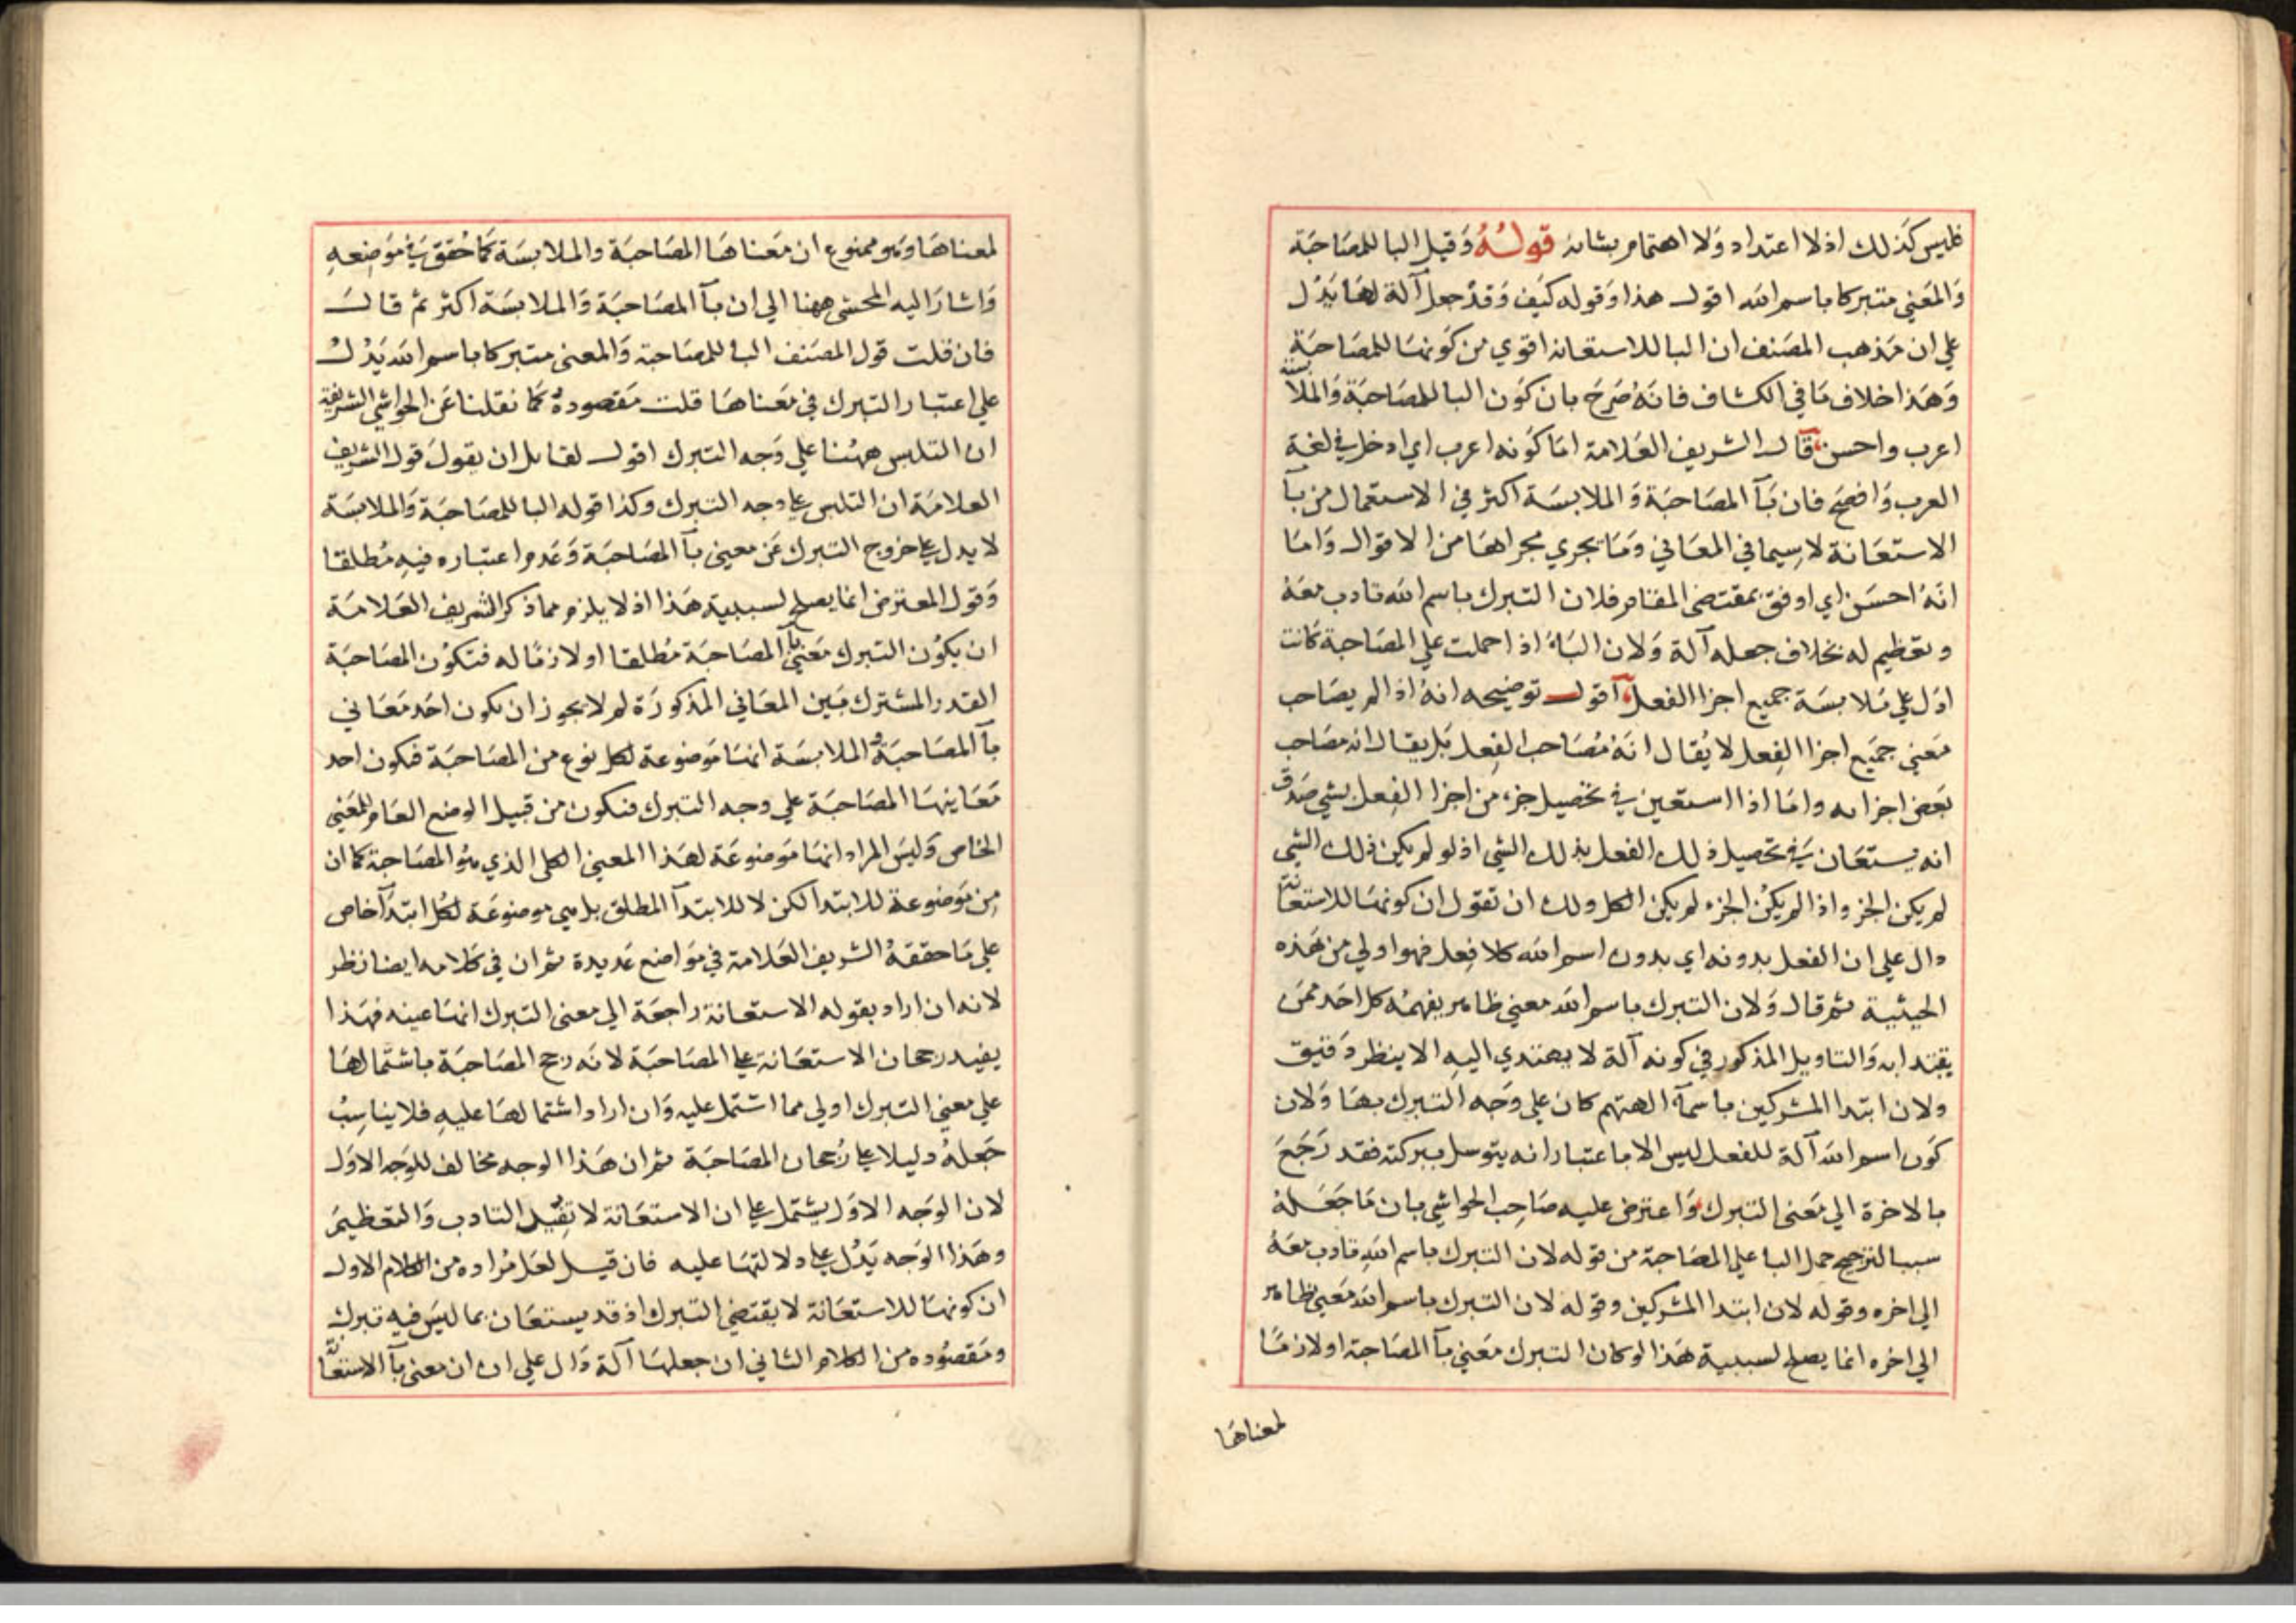 فليس كذلك اذ لا اعتداد ولا اهتمام بشانه قوله وقيل البا للمصاحبة
والمعني متبركا باسم الله اقول هذا وقوله كيف وقد جعل آلة لها يدل
علي ان مذهب المصنف ان البا للاستعانه اقوي من كونها للمصاحبة
وهذا خلاف ما في الكشاف فانه صرح بان كون البا للمصاحبة والملابسة
اعرب واحسن قال الشريف العلامة اما كونه اعرب اي ادخل في لغة
العرب وافصح فان بآ المصاحبة والملابسة اكثر في الاستعمال من بآ
الاستعانة لا سيما في المعاني وما يجري مجراها من الاقوال واما
انه احسن اي اوفق بمقتضى المقام فلان التبرك باسم الله تادب معه
وتعظيم له بخلاف جعله آلة ولان الباء اذا حملت علي المصاحبة كانت
ادل علي ملابسة جميع اجزا الفعل اقول توضيحه انه اذا لم يصاحب
معني جميع اجزا الفعل لا يقال انه مصاحب الفعل بل يقال انه مصاحب
بعض اجزايه واما اذا استعين في تحصيل جزء من اجزا الفعل بشي صدق
انه يستعان في تحصيل ذلك الفعل بذلك الشي اذ لو لم يكن ذلك الشي
لم يكن الجز واذا لم يكن الجزء لم يكن الكل ولك ان تقول ان كونها للاستعانة
دال علي ان الفعل بدونه اي بدون اسم الله كلا فعل فهو اولي من هذه
الحيثية ثم قال ولان التبرك باسم الله معني ظاهر يفهمه كل احد ممن
يبتدا به والتاويل المذكور في كونه آلة لا يهتدي اليه الا بنظر دقيق
ولان ابتدا المشركين باسمآ الهتهم كان علي وجه التبرك بها ولان
كون اسم الله آلة للفعل ليس الا باعتبار انه يتوسل ببركته فقد رجع
بالاخرة الي معنى التبرك واعترض عليه صاحب الحواشي بان ما جعله
سببا لترجيح حمل البا علي المصاحبة من قوله لان التبرك باسم الله تادب معه
الي اخره وقوله لان ابتدا المشركين وقوله لان التبرك باسم الله معني ظاهر
الي اخره انما يصلح لسببية هذا لو كان التبرك معني بآ المصاحبة او لازما
لمعناها
لمعناها وهو ممنوع ان معناها المصاحبة والملابسة كما حقق في موضعه
واشار اليه المحشي ههنا الي ان بآ المصاحبة والملابسة اكثر ثم قال
فان قلت قول المصنف البا للمصاحبة والمعنى متبركا باسم الله يدل
علي اعتبار التبرك في معناها قلت مقصوده كما نقلنا عن الحواشي الشريفة
ان التلبس ههنا علي وجه التبرك اقول لقايل ان يقول قول الشريف
العلامة ان التلبس علي وجه التبرك وكذا قوله البا للمصاحبة والملابسة
لا يدل علي خروج التبرك عن معني بآ المصاحبة وعدم اعتباره فيه مطلقا
وقول المعترض انما يصلح لسببية هذا اذ لا يلزم مما ذكر الشريف العلامة
ان يكون التبرك معني بآ المصاحبة مطلقا او لازما له فتكون المصاحبة
القدر المشترك بين المعاني المذكورة لم لا يجوز ان يكون احد معاني
بآ المصاحبة والملابسة انها موضوعة لكل نوع من المصاحبة فيكون احد
معانيها المصاحبة علي وجه التبرك فتكون من قبيل الوضع العام للمعني
الخاص وليس المراد انها موضوعة لهذا المعني الكلي الذي هو المصاحبة كما ان
من موضوعة للابتدا لكن لا للابتدآ المطلق بل هي موضوعة لكل ابتدآ خاص
علي ما حققه الشريف العلامة في مواضع عديدة ثم ان في كلامه ايضا نظر
لانه ان اراد بقوله الاستعانة راجعة الي معنى التبرك انها عينه فهذا
يفيد رجحان الاستعانة علي المصاحبة لانه رجح المصاحبة باشتمالها
علي معني التبرك اولي مما اشتمل عليه وان اراد اشتمالها عليه فلا يناسب
جعله دليلا علي رجحان المصاحبة ثم ان هذا الوجه مخالف للوجه الاول
لان الوجه الاول يشتمل علي ان الاستعانة لا تفيد التادب والتعظيم
وهذا الوجه يدل علي دلالتها عليه فان قيل لعل مراده من الكلام الاول
ان كونها للاستعانة لا يقتضي التبرك اذ قد يستعان بما ليس فيه تبرك
ومقصوده من الكلام الثاني ان جعلها آلة دال علي ان ان معنى بآ الاستعا